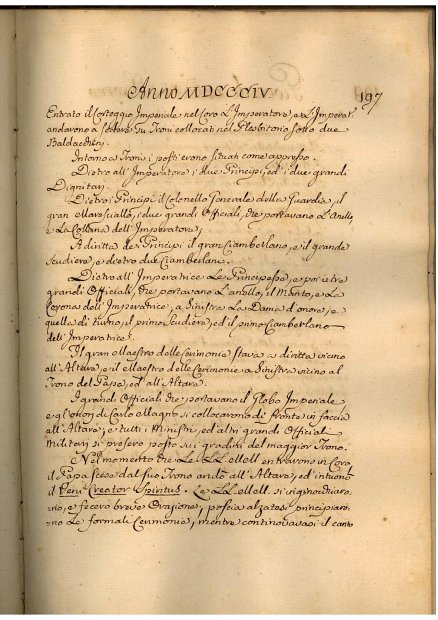 Anno MDCCCIV. 197
Entrato il Corteggio Imperiale nel Coro L'Imperatore, e L'Imperat.
andarono a sedere su Troni collocati nel Presbiterio sotto due
Baldacchini.
Intorno a Troni i posti erono situati come appresso.
Dietro all' Imperatore i due Principi, ed i due grandi
Dignitarj.
Dietro i Principi il Colonello Generale della Guardia, il
gran Maresciallo, i due grandi Officiali, che portavano L'Anello,
e La Collana dell' Imperatore;
A diritta de' Principi il gran Ciamberlano, e il grande
Scudiere, e dietro due Ciamberlani.
Dietro all' Imperatrice Le Principesse, e poi i tre
grandi Officiali, che portavano L'anello, il Manto, e La
Corona dell' Imperatrice, a Sinistra La Dama d'onore, e
quella di turno, il primo Scudiere, ed il primo Ciamberlano
dell' Imperatrice.
Il gran Maestro delle Cerimonie stava a diritta vicino
all' Altare, e il Maestro delle Cerimonie a Sinistra vicino al
Trono del Papa, ed all' Altare.
I grandi Officiali che portavano il Globo Imperiale
e gl' onori di Carlo Magno si collocarono di fronte in faccia
all' Altare; e tutti i Ministri, ed altri grandi Officiali
Militari si posero posto sui gradini del maggior Trono.
Nel momento che Le LL. MM. entravono in Coro
il Papa scese dal suo Trono andò all' Altare, ed intuonò
il Veni Creator Spiritus. Le LL. MM. si inginocchiaro
no, e fecero breve Orazione, poscia alzatesi principiaro
no Le formali Cerimonie, mentre continovavasi il canto